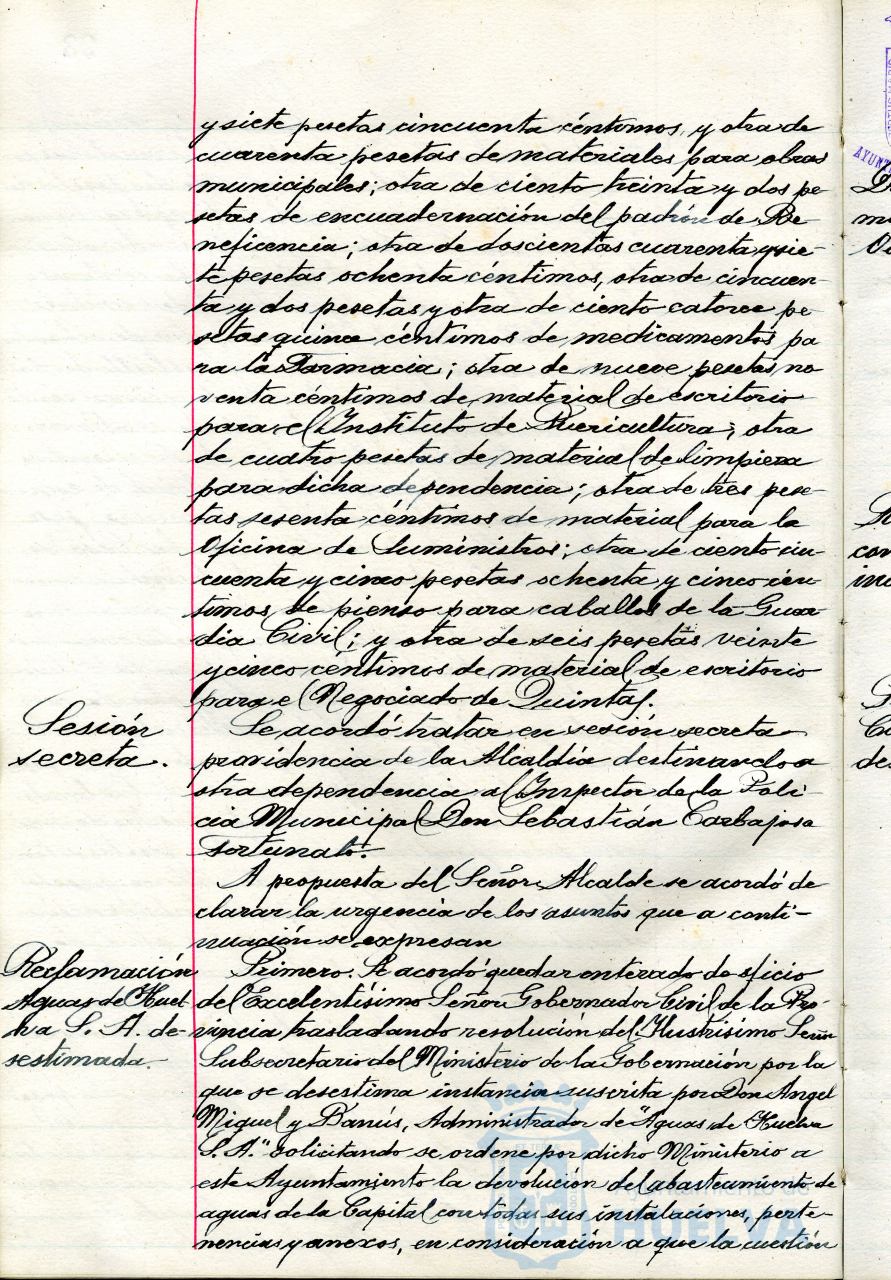 y siete pesetas cincuenta céntimos, y otra de
cuarenta pesetas de materiales para obras
municipales; otra de ciento treinta y dos pe-
setas de encuadernación del padrón de Be-
neficencia; otra de doscientas cuarenta y sie-
te pesetas ochenta céntimos, otra de cincuen-
ta y dos pesetas y otra de ciento catorce pe-
setas quince céntimos de medicamentos pa
ra la Farmacia; otra de nueve pesetas no
venta céntimos de material de escritorio
para el Instituto de Puericultura; otra
de cuatro pesetas de material de limpieza
para dicha dependencia; otra de tres pese-
tas sesenta céntimos de material para la
Oficina de Suministros; otra de ciento cin-
cuenta y cinco pesetas ochenta y cinco cén-
timos de pienso para caballos de la Guar-
dia Civil; y otra de seis pesetas veinte
y cinco céntimos de material de escritorio
para el Negociado de Quintas.
Sesión
secreta.
Se acordó tratar en sesión secreta
providencia de la Alcaldía destinando a
otra dependencia al Inspector de la Poli-
cia Municipal Don Sebastián Carbajosa
Fortunato.
A propuesta del Señor Alcalde se acordó de
clarar la urgencia de los asuntos que a conti-
nuación se expresan
Reclamación
Aguas de Huel-
va S. A. de-
sestimada.
Primero. Se acordó quedar enterado de oficio
del Excelentísimo Señor Gobernador Civil de la Pro-
vincia trasladando resolución del Ilustrísimo Señor
Subsecretario del Ministerio de la Gobernación por la
que se desestima instancia suscrita por Don Angel
Miguel y Banús, Administrador de "Aguas de Huelva
S. A." solicitando se ordene por dicho Ministerio a
este Ayuntamiento la devolución del abastecimiento de
aguas de la Capital con todas sus instalaciones, perte-
nencias y anexos, en consideración a que la cuestión
Ayuntamiento de
HUELVA